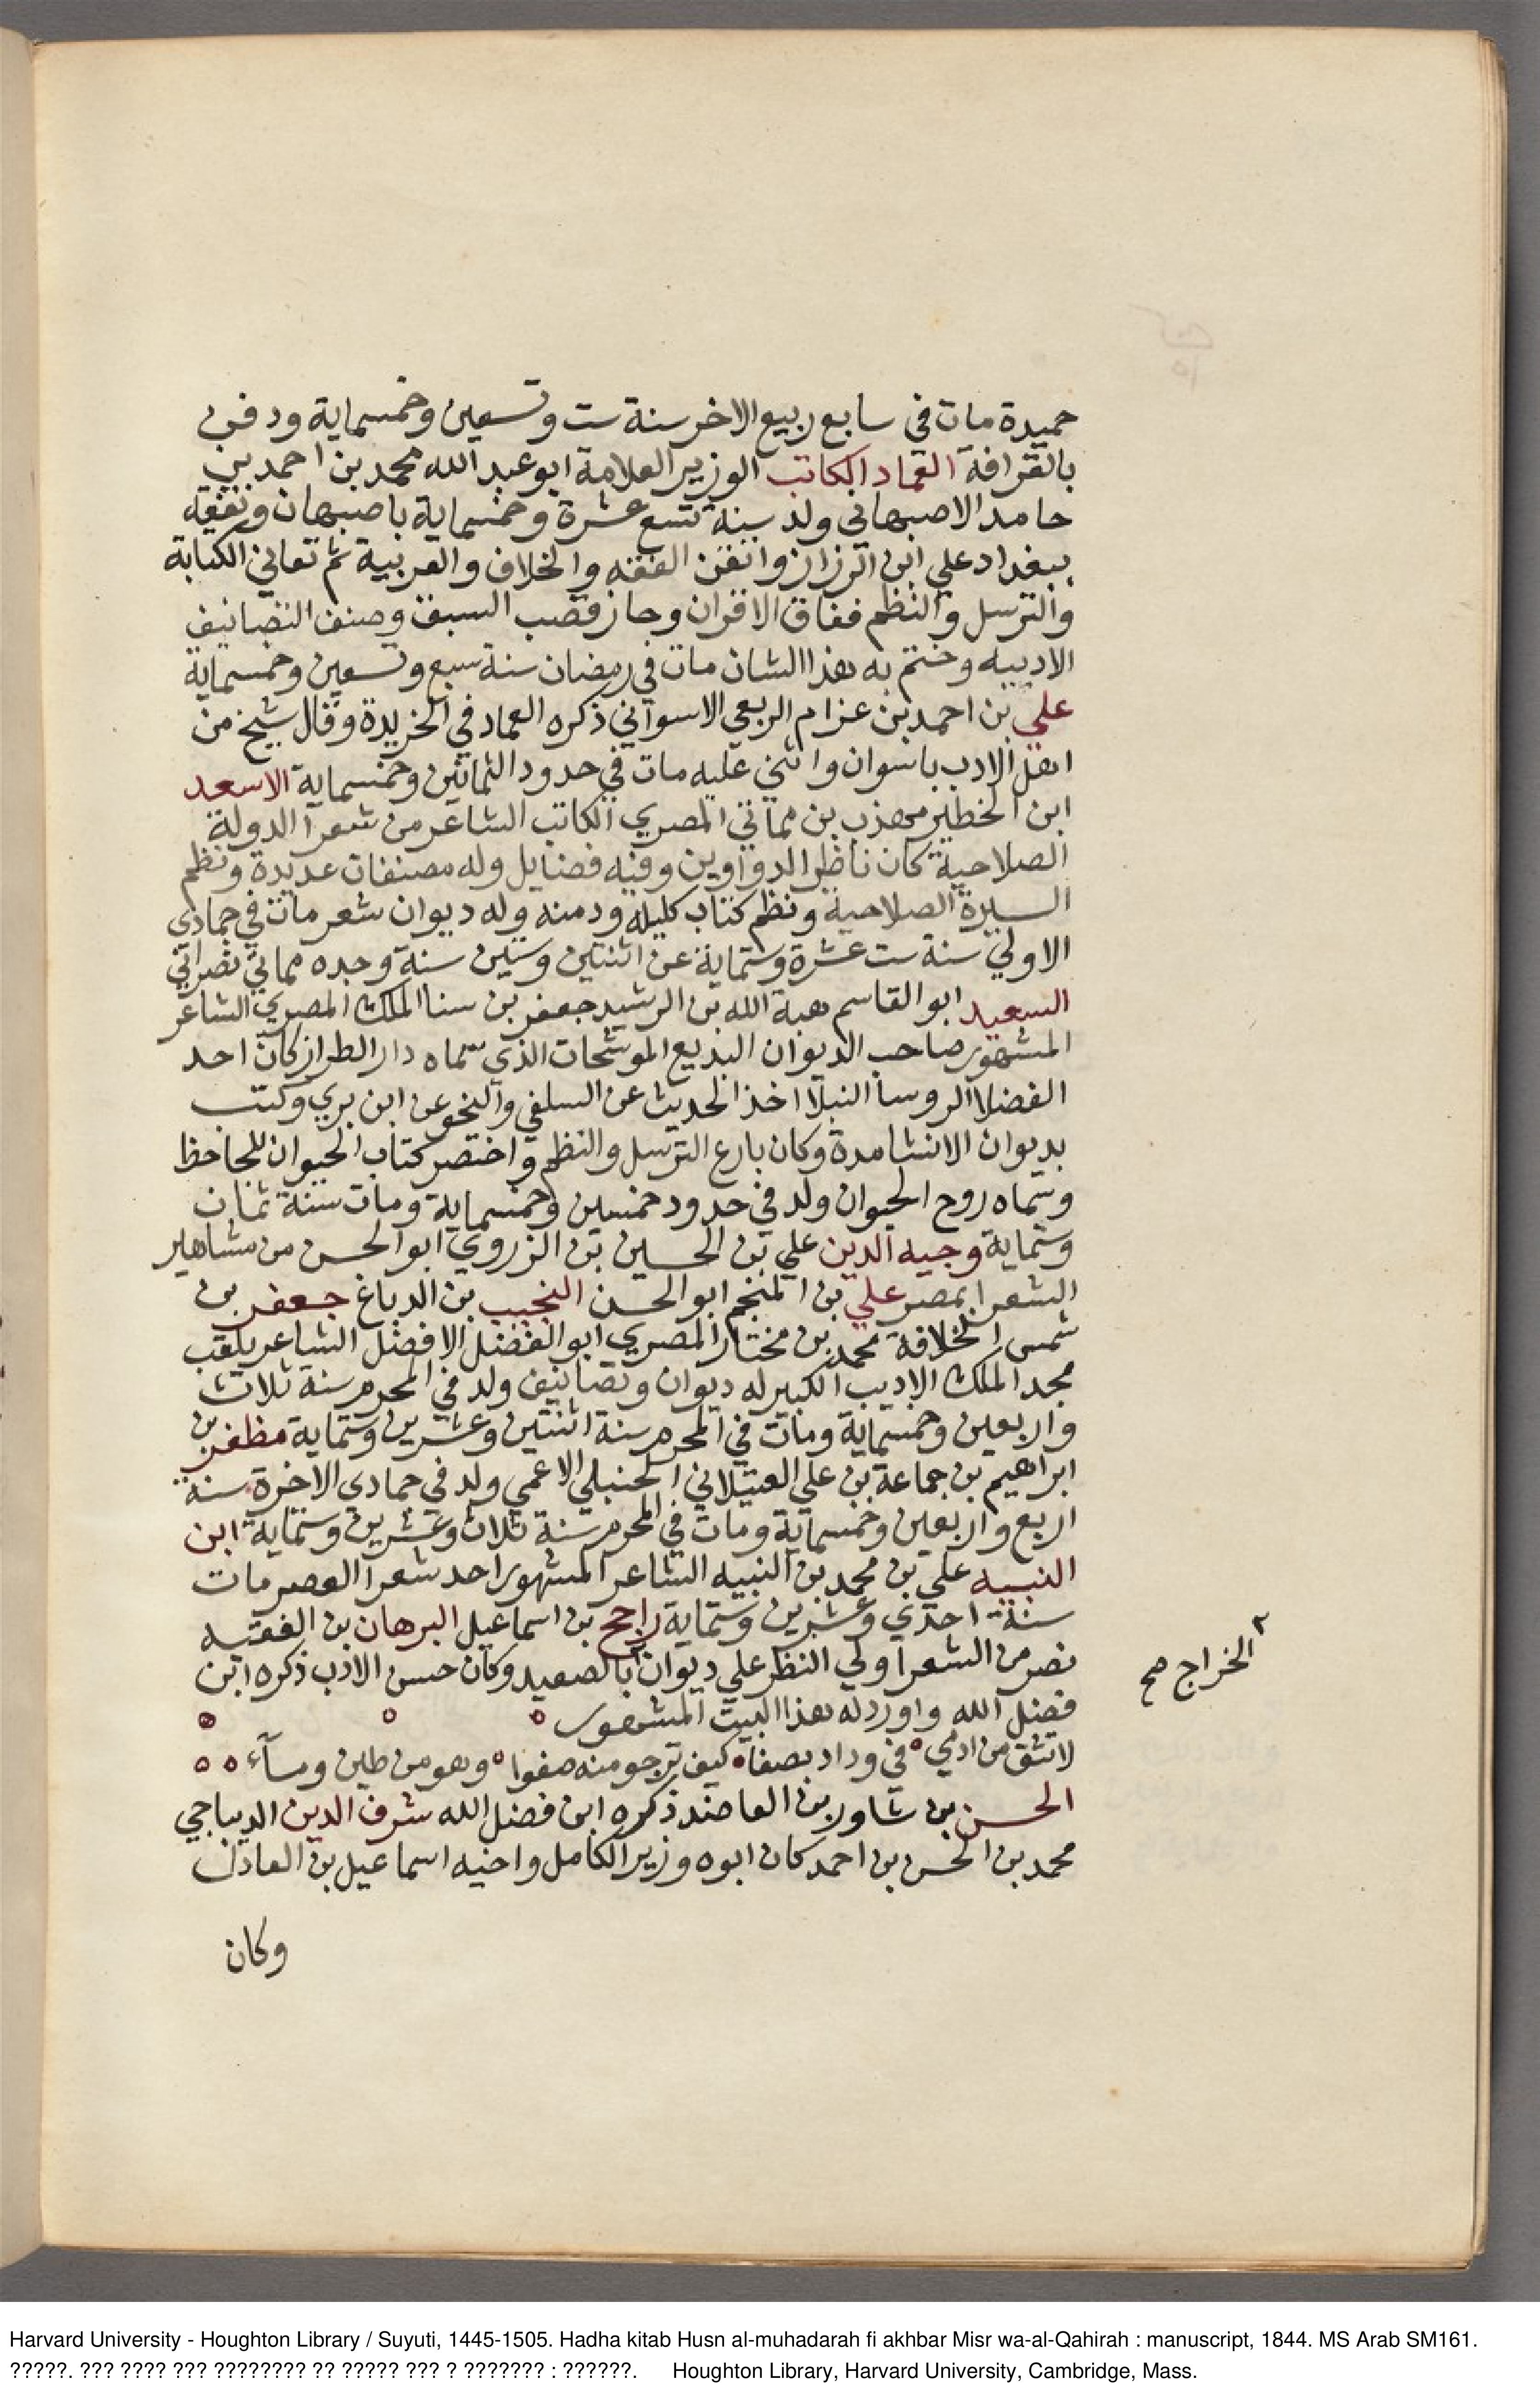 حميدة مات في سابع ربيع الاخر سنة ست وتسعين وخمسماية ودفن
بالقرافة العماد الكاتب الوزير العلامة ابو عبد الله محمد بن احمد بن
حامد الاصبهاني ولد سنة تسع عشرة وخمسماية باصبهان وتفقه
ببغداد علي ابن الرزاز واتقن الفقه والخلاف والعربية ثم تعاني الكتابة
والترسل والنظم ففاق الاقران وحاز قصب السبق وصنف التصانيف
الادبيه وختم به هذا الشان مات في رمضان سنة سبع وتسعين وخمسماية
علي بن احمد بن عزام الربعي الاسواني ذكره العماد في الخريدة وقال شيخ من
اهل الادب باسوان واثني عليه مات في حدود الثمانين وخمسماية الاسعد
ابن الخطير مهذب بن مماتي المصري الكاتب الشاعر من شعرا الدولة
الصلاحية كان ناظر الدواوين وفيه فضايل وله مصنفات عديدة ونظم
السيرة الصلاحية ونظم كتاب كليله ودمنه وله ديوان شعر مات في جمادي
الاولي سنة ست عشرة وستماية عن اثنتين وستين سنة وجده مماتي نصراني
السعيد ابو القاسم هبة الله بن الرشيد جعفر بن سنا الملك المصري الشاعر
المشهور صاحب الديوان البديع الموشحات الذي سماه دار الطراز كان احد
الفضلا الروسا النبلا اخذ الحديث عن السلفي والنحو عن ابن بري وكتب
بديوان الانشا مدة وكان بارع الترسل والنظم واختصر كتاب الحيوان للجاحظ
وسماه روح الحيوان ولد في حدود خمسين وخمسماية ومات سنة ثمان
وستماية وجيه الدين علي بن الحسين بن الزروي ابو الحسن من مشاهير
الشعرا بمصر علي بن المنجم ابو الحسن النجيب بن الدباغ جعفر بن
شمس الخلافة محمد بن مختار المصري ابو الفضل الافضل الشاعر يلقب
مجد الملك الاديب الكبير له ديوان وتصانيف ولد في المحرم سنة ثلاث
واربعين وخمسماية ومات في المحرم سنة اثنتين وعشرين وستماية مظفر بن
ابراهيم بن جماعة بن علي العيلاني الحنبلي الاعمي ولد في جمادي الاخرة سنة
اربع واربعين وخمسماية ومات في المحرم سنة ثلاث وعشرين وستماية ابن
النبيه علي بن محمد بن النبيه الشاعر المشهور احد شعرا العصر مات
سنة احدي وعشرين وستماية راجح بن اسماعيل البرهان بن الفقيه
نصر من الشعرا ولي النظر علي ديوان ٢ بالصعيد وكان حسن الادب ذكره ابن
٢ الخراج صح
فضل الله واورد له هذا البيت المشهور
لا تثق من ادمي في وداد بصفا كيف ترجو منه صفوا وهو من طين ومآء
الحسن بن شاور بن العاضد ذكره ابن فضل الله شرف الدين الديباجي
محمد بن الحسن بن احمد كان ابوه وزير الكامل واخيه اسماعيل بن العادل
وكان
Harvard University - Houghton Library / Suyuti, 1445-1505. Hadha kitab Husn al-muhadarah fi akhbar Misr wa-al-Qahirah : manuscript, 1844. MS Arab SM161.
?????. ??? ???? ??? ???????? ?? ????? ??? ? ??????? : ??????. Houghton Library, Harvard University, Cambridge, Mass.